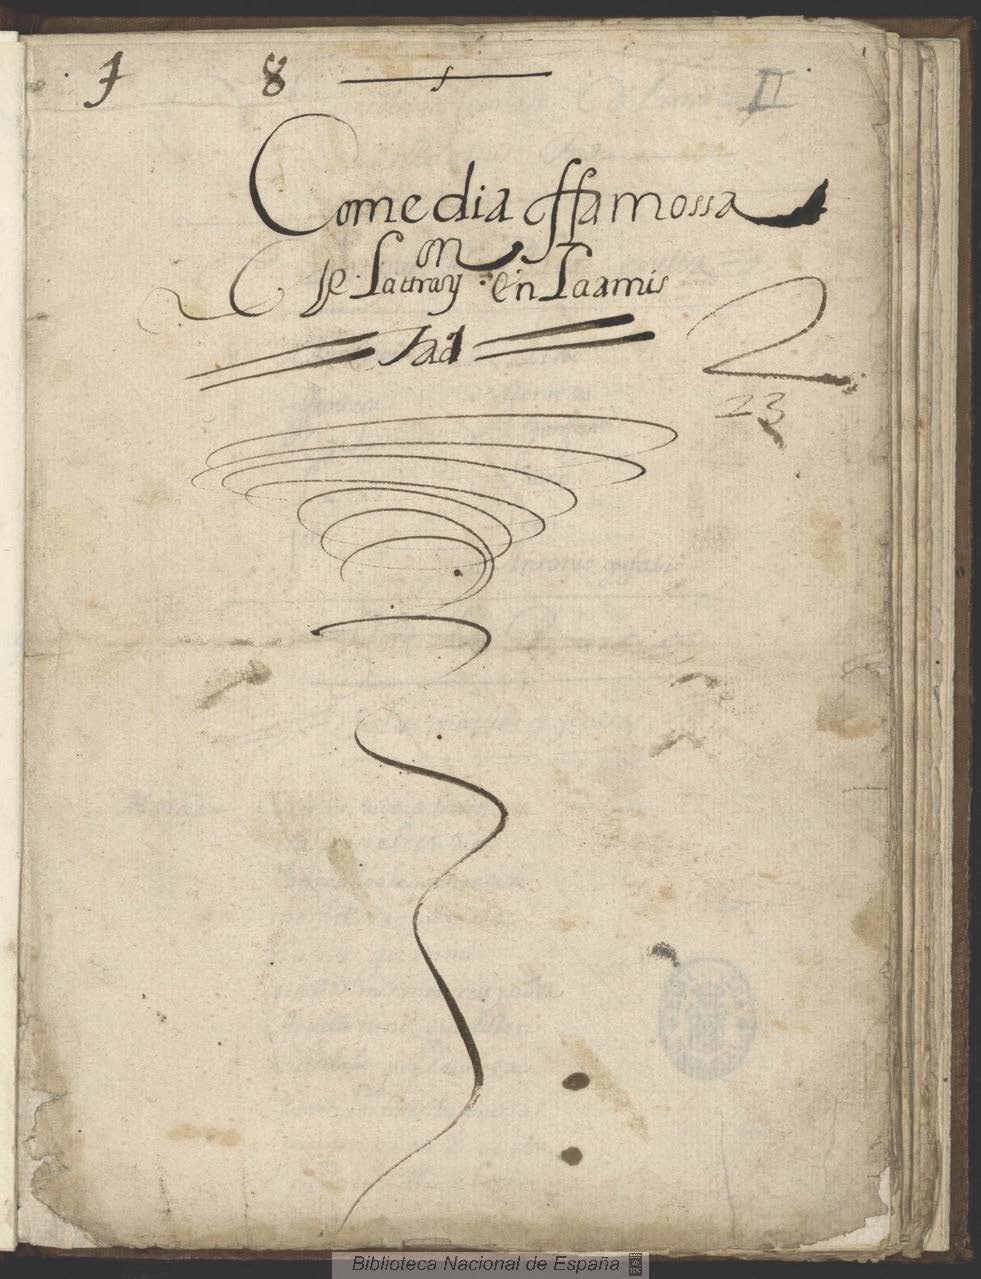 1 8
II
Comedia ffamossa
de la trayçion en la amis
tad
2
23
Biblioteca Nacional de España